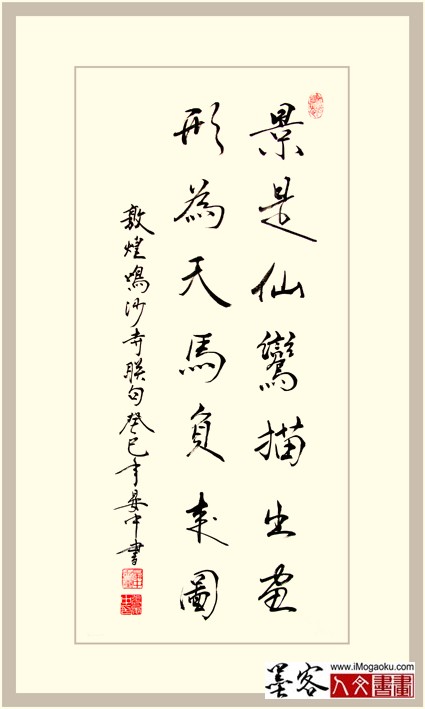 景是仙鸞描出画
形為天馬負來圖
敦煌鳴沙寺聯句癸巳年晏中書
墨客
www.iMogaoku.com
人文書畫